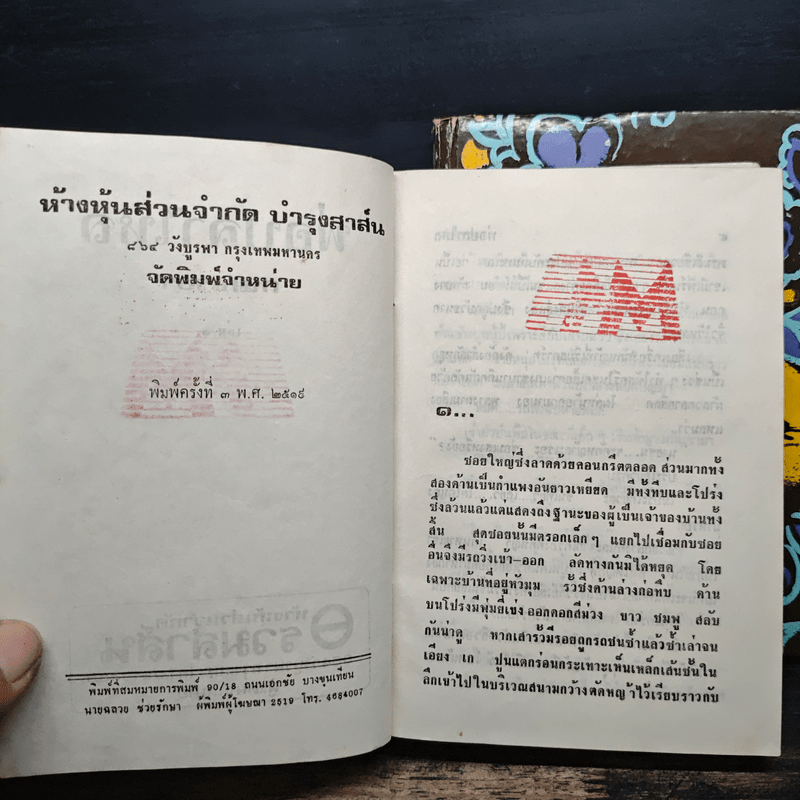 ห้างหุ้นส่วนจำกัด บำรุงสาส์น
๘๖๔ วังบูรพา กรุงเทพมหานคร
จัดพิมพ์จำหน่าย
พิมพ์ครั้งที่ ๓ พ.ศ. ๒๕๑๙
พิมพ์ที่สมหมายการพิมพ์ 90/18 ถนนเอกชัย บางขุนเทียน
นายฉลวย ช่วยรักษา ผู้พิมพ์ผู้โฆษณา 2519 โทร. 4684007
๑...
ซอยใหญ่ซึ่งลาดด้วยคอนกรีตตลอด ส่วนมากทั้ง
สองด้านเป็นกำแพงอันยาวเหยียด มีทั้งทึบและโปร่ง
ซึ่งล้วนแล้วแต่แสดงถึงฐานะของผู้เป็นเจ้าของบ้านทั้ง
สิ้น สุดซอยนั้นมีตรอกเล็กๆ แยกไปเชื่อมกับซอย
อื่นจึงมีรถวิ่งเข้า-ออก ลัดทางกันมิได้หยุด โดย
เฉพาะบ้านที่อยู่หัวมุม รั้วซึ่งด้านล่างก่อทึบ ด้าน
บนโปร่งมีพุ่มยี่เข่งออกดอกสีม่วง ขาว ชมพู สลับ
กันน่าดู หากเสารั้วมีรอยถูกรถชนซ้ำแล้วซ้ำเล่าจน
เอียง เก ปูนแตกร่อนกระเทาะเห็นเหล็กเส้นชั้นใน
ลึกเข้าไปในบริเวณสนามกว้างตัดหญ้าไว้เรียบราวกับ